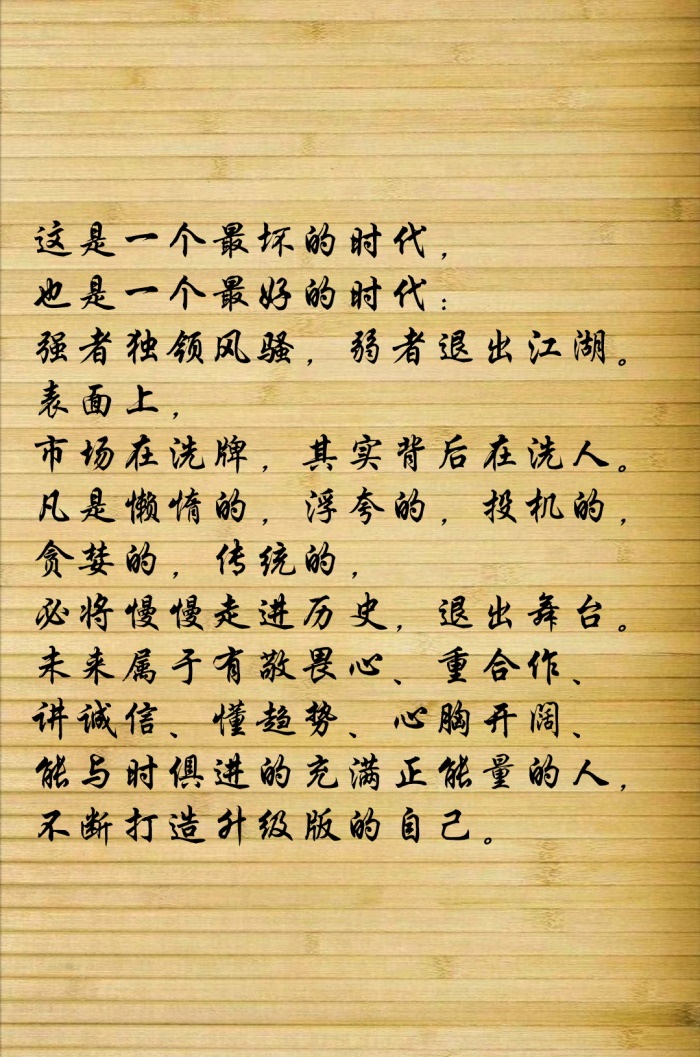 这是一个最坏的时代，
也是一个最好的时代：
强者独领风骚，弱者退出江湖。
表面上，
市场在洗牌，其实背后在洗人。
凡是懒惰的，浮夸的，投机的，
贪婪的，传统的，
必将慢慢走进历史，退出舞台。
未来属于有敬畏心、重合作、
讲诚信、懂趋势、心胸开阔、
能与时俱进的充满正能量的人，
不断打造升级版的自己。